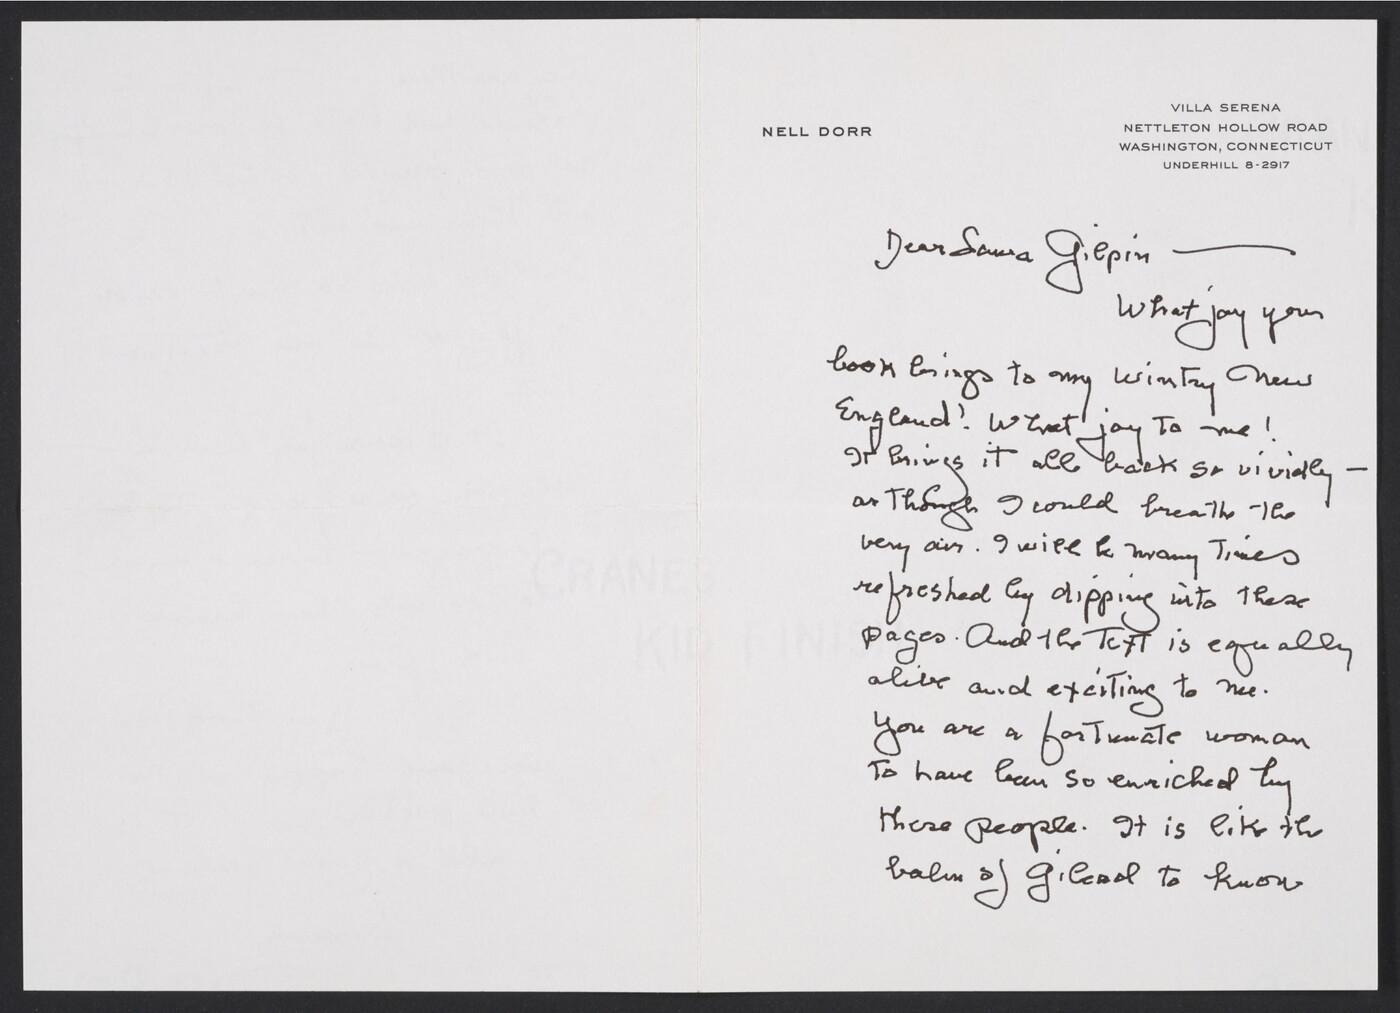 NELL DORR
VILLA SERENA
NETTLETON HOLLOW ROAD
WASHINGTON, CONNECTICUT
UNDERHILL 8-2917
Dear Laura Gilpin —
What joy your
book brings to my wintry New
England! What joy to me!
It brings it all back so vividly —
as though I could breathe the
very air. I will be many times
refreshed by dipping into these
pages. And the text is equally
alive and exciting to me.
You are a fortunate woman
to have been so enriched by
these people. It is like the
balm of Gilead to know
CRANES
KID FINISH